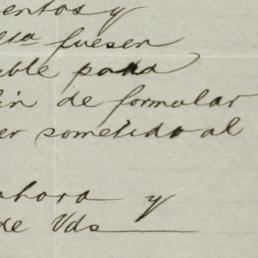 entos y
esa fuesen
ble para
in de formular
er sometido al
ahora y
de Vds